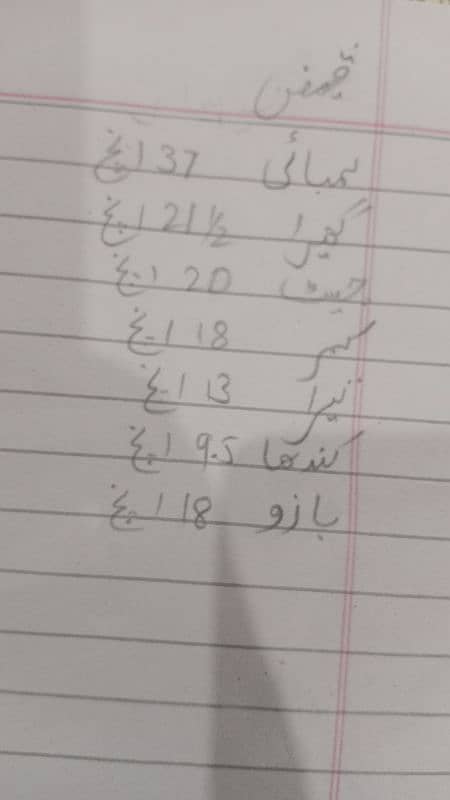 لمبائی 37 انچ
گھیرا 21 ½ انچ
چیسٹ 20 انچ
کمر 18 انچ
تیرا 13 انچ
کندھا 9.5 انچ
بازو 18 انچ